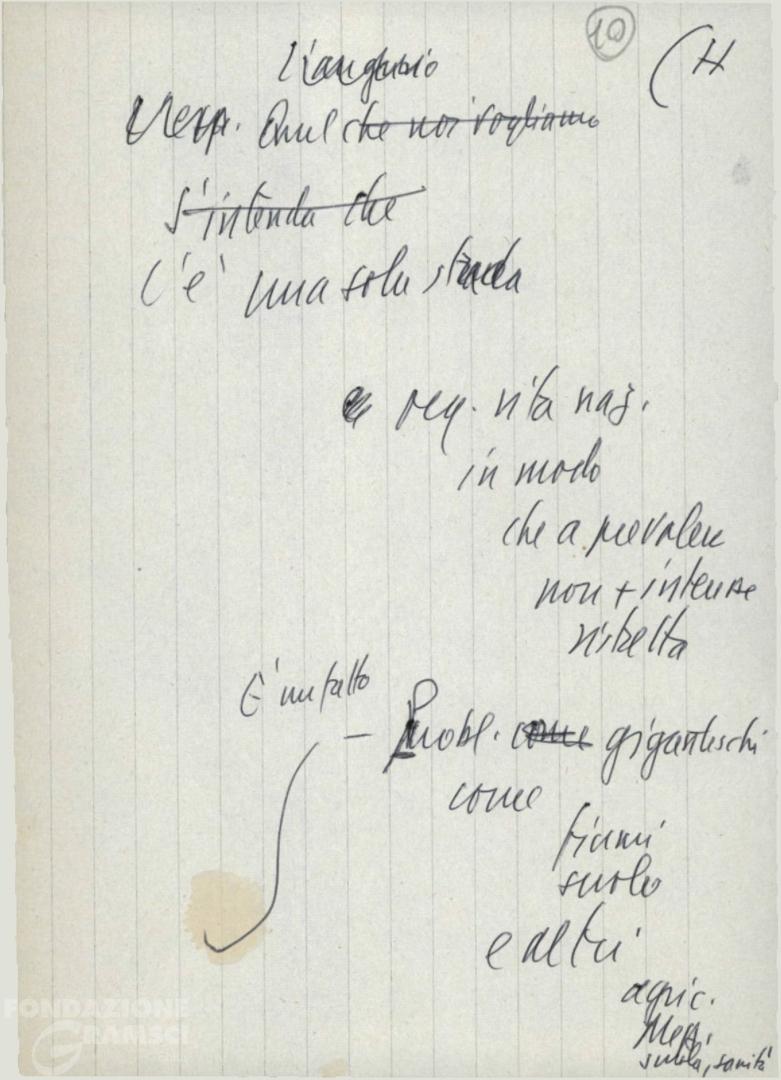 10
(H
l'augurio
Quel che noi vogliamo
S'intenda che
C'è una sola strada
e reg. vita naz.
in modo
che a prevalere
non + interesse
ristretto
E' un fatto
- Probl. come giganteschi
come
fiumi
suolo
e altri
agric.
Mezz.
scuola, sanità
FONDAZIONE
GRAMSCI